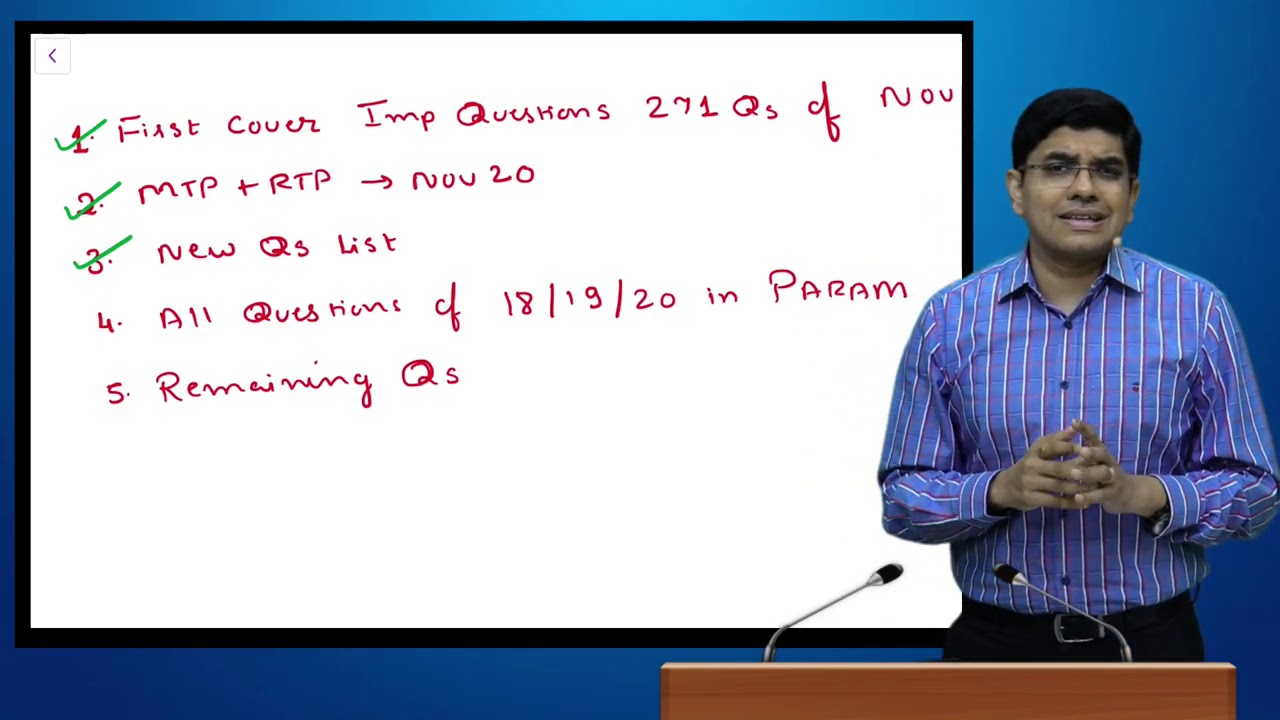 1. First Cover Imp Questions 271 Qs of Nov
2. MTP + RTP → Nov 20
3. New Qs list
4. All Questions of 18/19/20 in PARAM
5. Remaining Qs